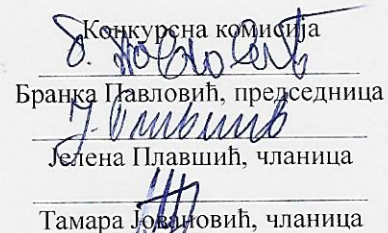 Конкурсна комисија
Бранка Павловић, председница
Јелена Плавшић, чланица
Тамара Јовановић, чланица